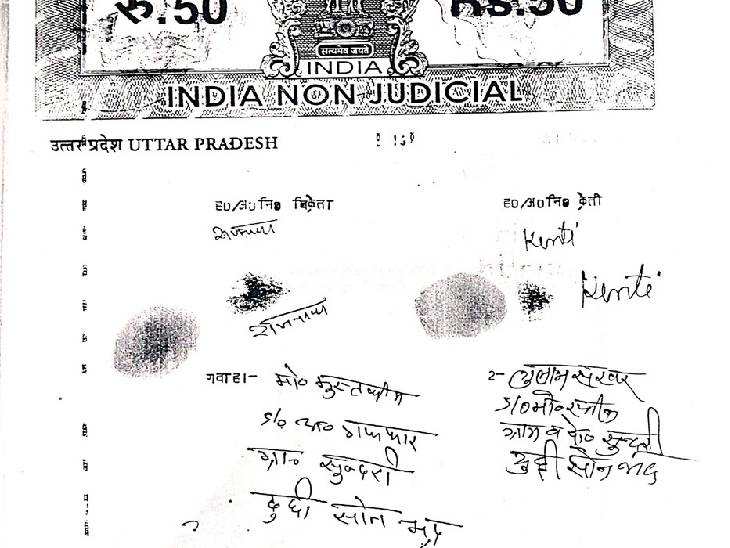 रु.50 Rs.50
सत्यमेव जयते
INDIA
INDIA NON JUDICIAL
उत्तर प्रदेश UTTAR PRADESH
ह0/अ0 नि0 विक्रेता ह0/अ0 नि0 क्रेती
राजनाथ Kunti
राजनाथ Kunti
गवाह1- मो० मुस्तकीम
S/o गफ्फार
ग्रा० सुन्दरी
दुद्धी सोनभद्र
2- गुलाम सरवर
S/o मो०
ग्राम व पो० सुन्दरी
दुद्धी सोनभद्र